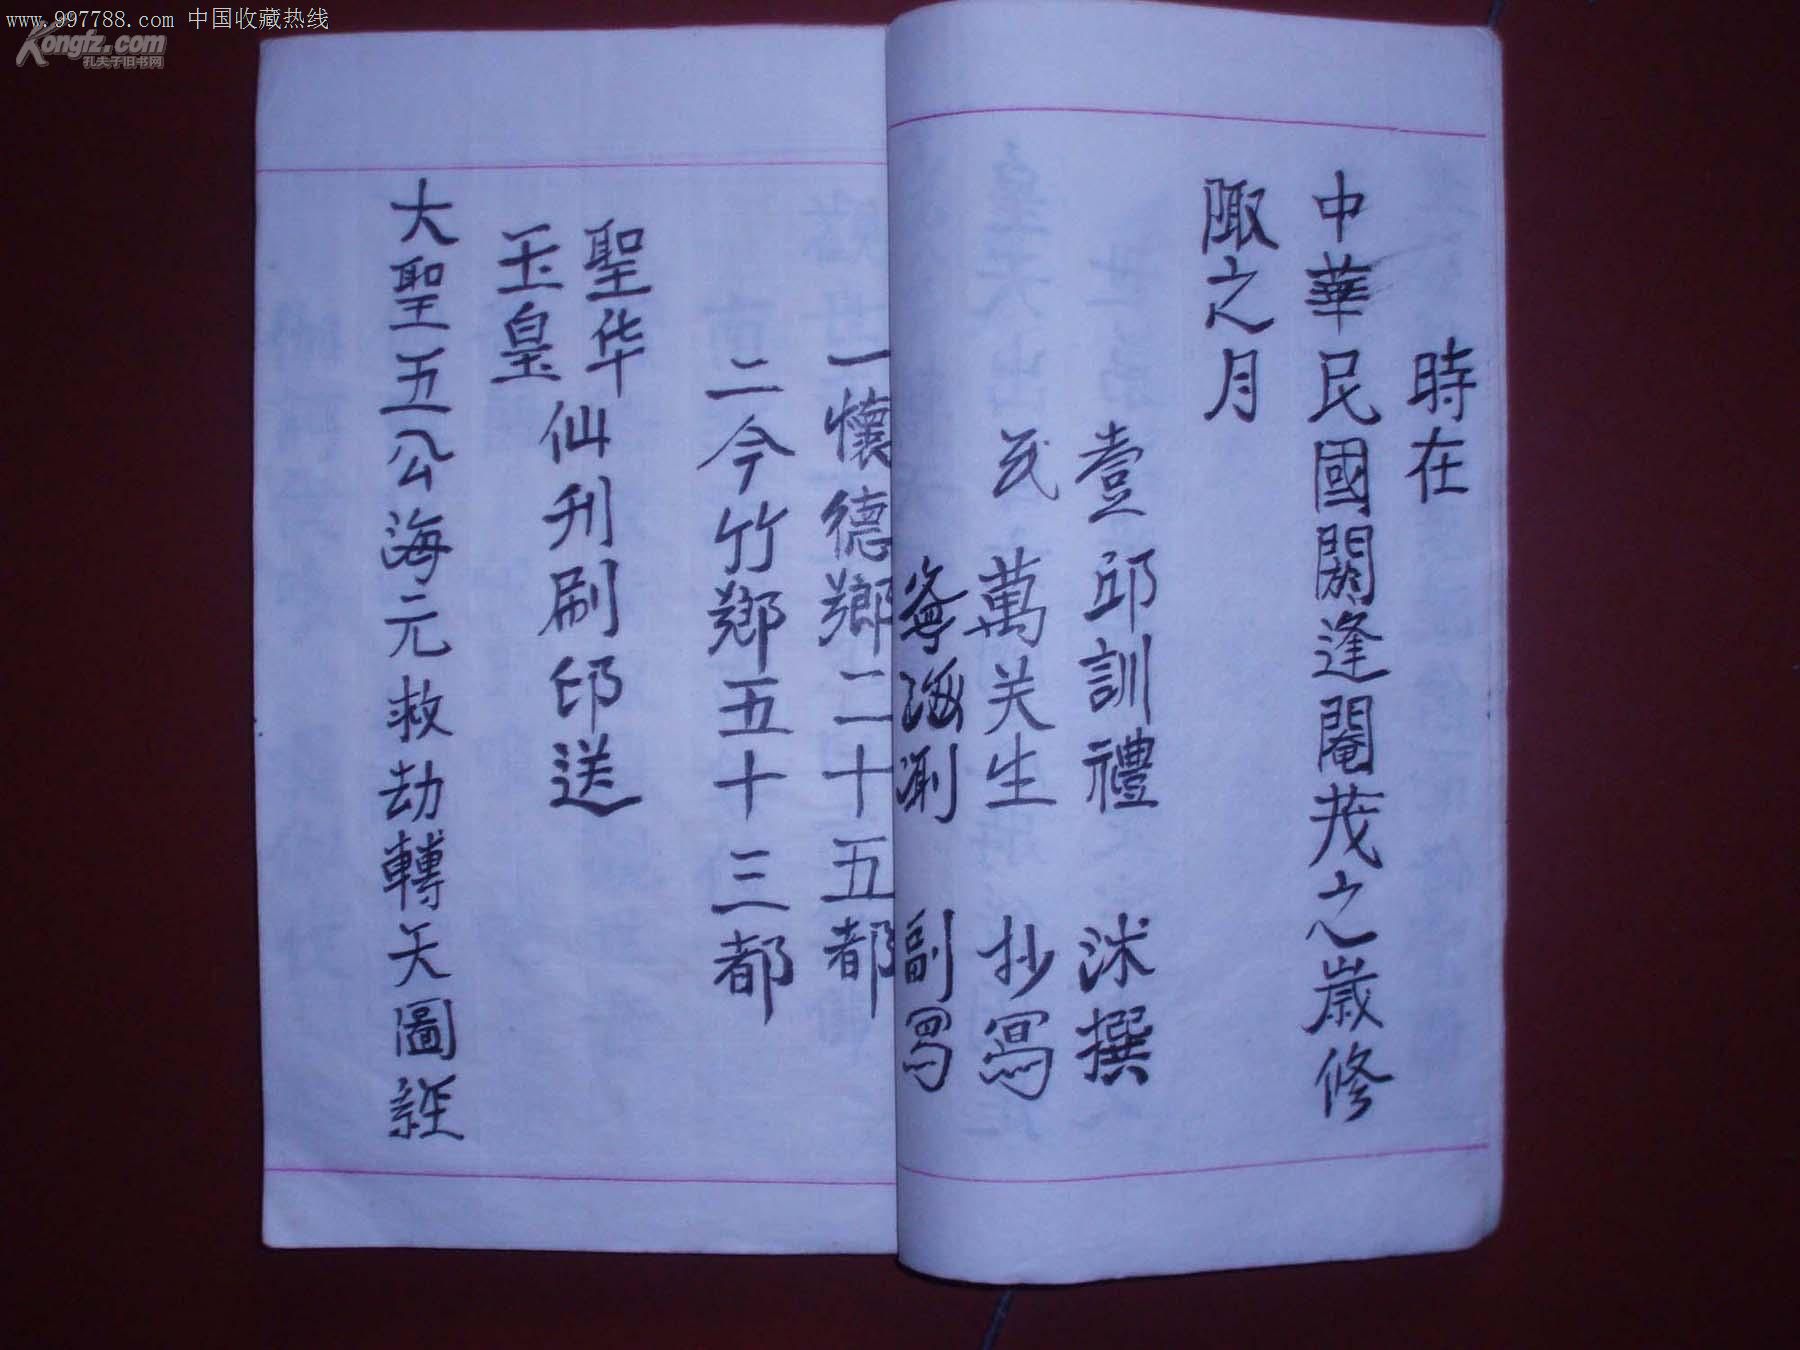 www.997788.com 中国收藏热线
Kongfz.com
孔夫子旧书网
時在
中華民國閼逢閹茂之歲修
陬之月
壹邱訓禮 沭撰
萬关生 抄寫
海涮 副寫
一懷德鄉二十五都
二今竹鄉五十三都
聖华
玉皇
仙刋刷印送
大聖五公海元救劫轉天圖經